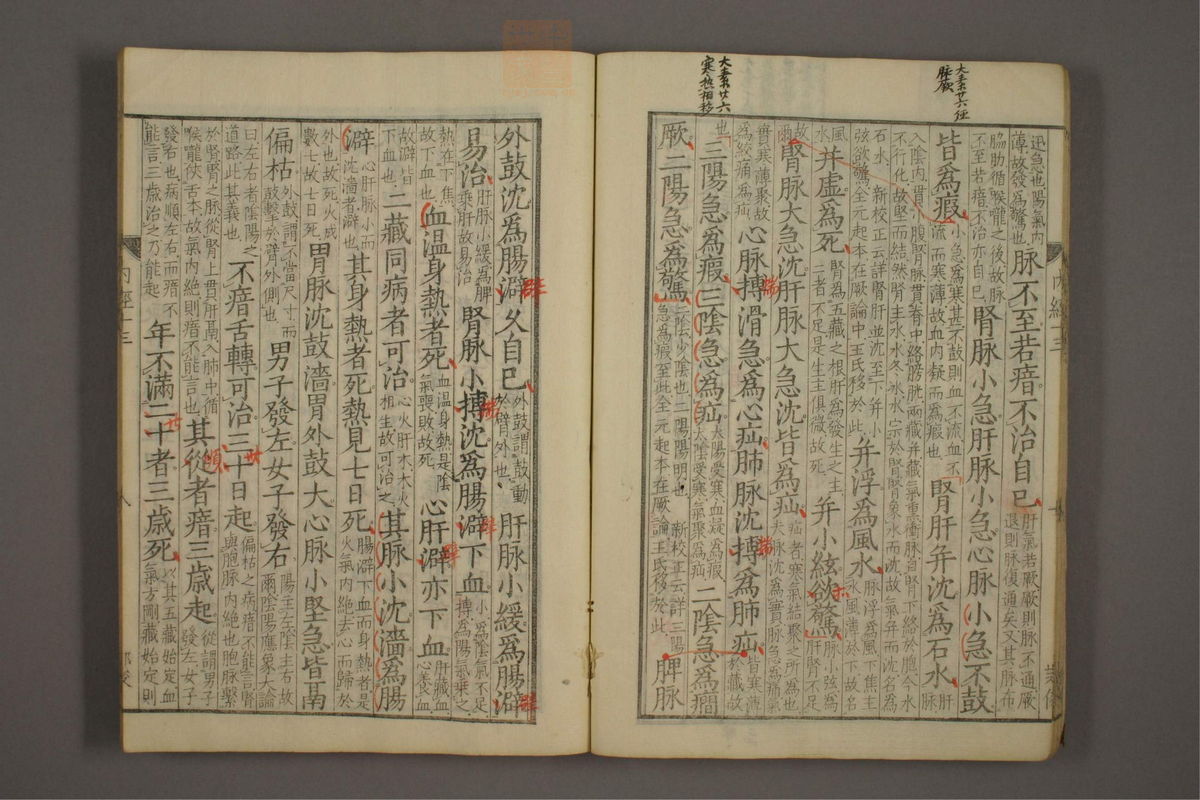 大素廿六經
脉厥
大素廿六
寒熱相移
迅急也陽氣內薄故發爲驚也脈不至若瘖不治自已肝氣若厥厥則脈不通厥退則脈復通矣又其脈布
脇肋循喉嚨之後故脈不至若瘖不治亦自已腎脈小急肝脈小急心脈小急不鼓
皆爲瘕小急爲寒甚不鼓則血不流血不流而寒薄故血內凝而爲瘕也腎肝并沈爲石水肝脈
入陰內貫小腹腎脈貫脊中絡膀胱兩藏并藏氣熏衝脈自腎下絡於胞今水不行化故堅而結然腎主水水冬冰水宗於腎腎象水而沈故氣并而沈名爲
石水 新校正云詳腎肝并沈至下并小弦欲驚全元起本在厥論中王氏移於此并浮爲風水脈浮爲風下焦主水風薄於下故名
風水并虛爲死腎爲五藏之根肝爲發生之主二者不足是生主俱微故死并小絃欲驚肝腎不足脈小弦爲
故爾腎脈大急沈肝脈大急沈皆爲疝疝者寒氣結聚之所爲也夫脈沈爲實脈急爲痛氣
實寒薄聚故爲絞痛爲疝心脈搏滑急爲心疝肺脈沈搏爲肺疝皆寒薄於藏故
也三陽急爲瘕三陰急爲疝太陽受寒血凝爲瘕太陰受寒氣聚爲疝二陰急爲癎
厥二陽急爲驚二陰少陰也二陽陽明也 新校正云詳三陽急爲瘕至此全元起本在厥論王氏移於此脾脈
外鼓沈爲腸澼久自已外鼓謂鼓動於臂外也肝脈小緩爲腸澼
易治肝脈小緩爲脾乘肝故易治腎脈小搏沈爲腸澼下血小爲陰氣不足搏爲陽氣乘之
熱在下焦故下血也血温身熱者死血温身熱是陰氣喪敗故死心肝澼亦下血肝藏血心養血
故澼皆下血也二藏同病者可治心火肝木木火相生故可治之其脈小沈濇爲腸
澼心肝脈小而沈濇者澼也其身熱者死熱見七日死腸澼下血而身熱者是火氣內絶去心而歸於
外也故死火成數七故七日死胃脈沈鼓濇胃外鼓大心脈小堅急皆鬲
偏枯外鼓謂不當尺寸而鼓擊於臂外側也男子發左女子發右陽主左陰主右故爾陰陽應象大論
曰左右者陰陽之道路此其義也不瘖舌轉可治三十日起偏枯之病瘖不能言腎與胞脈內絶也胞脈繫
於腎腎之脈從腎上貫肝鬲入肺中循喉嚨俠舌本故氣內絶則瘖不能言也其從者瘖三歲起從謂男子發左女子
發右也病順左右而瘖不能言三歲治之乃能起年不滿二十者三歲死以其五藏始定血氣方剛藏始定則
內經十三
八